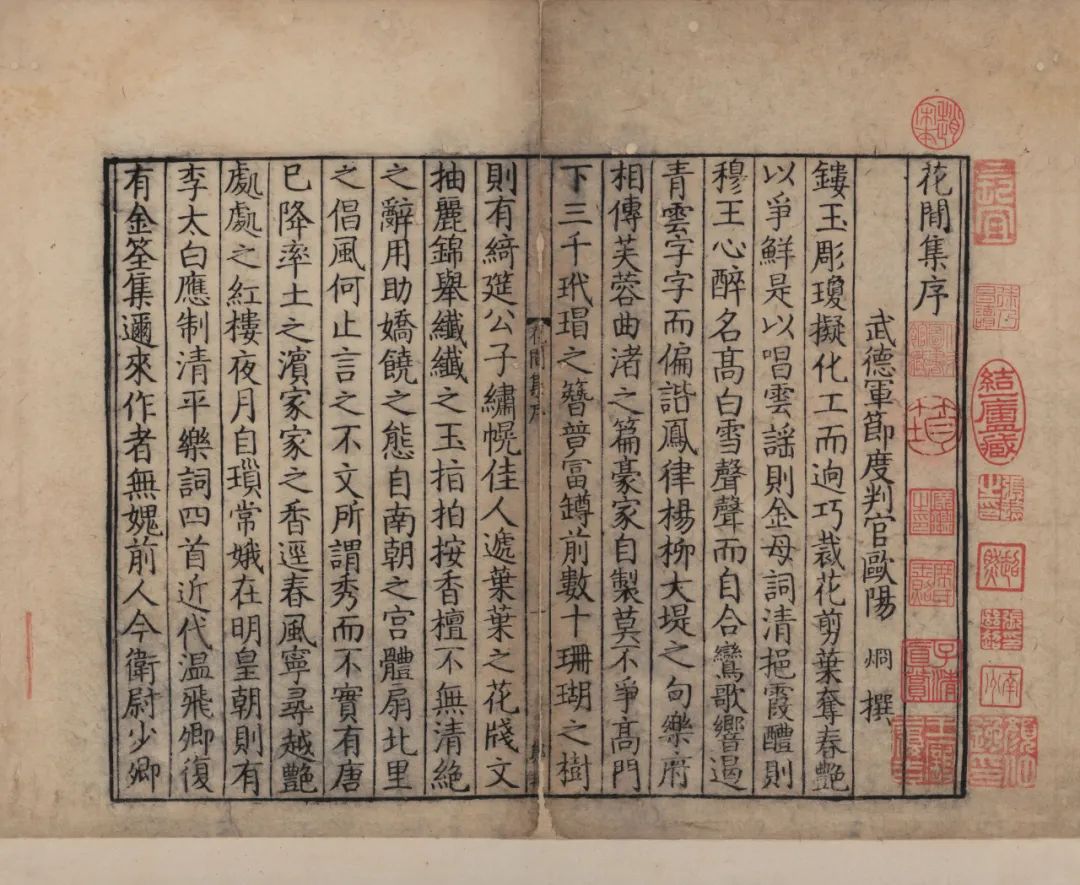 花間集序
武德軍節度判官歐陽 烱 撰
鏤玉彫瓊擬化工而逈巧裁花剪葉奪春艷
以爭鮮是以唱雲謠則金母詞清挹霞醴則
穆王心醉名髙白雪聲聲而自合鸞歌響遏
青雲字字而偏諧鳳律楊柳大堤之句樂府
相傳芙蓉曲渚之篇豪家自製莫不爭髙門
下三千玳瑁之簪競富罇前數十珊瑚之樹
花間集序
則有綺筵公子繡幌佳人遞葉葉之花牋文
抽麗錦舉纖纖之玉指拍按香檀不無清絶
之辭用助嬌饒之態自南朝之宫體扇北里
之倡風何止言之不文所謂秀而不實有唐
巳降率土之濱家家之香逕春風寧尋越艷
處處之紅樓夜月自瑣常娥在明皇朝則有
李太白應制清平樂詞四首近代温飛卿復
有金筌集邇來作者無媿前人今衛尉少卿
趙宋本
結一廬藏
子清真賞